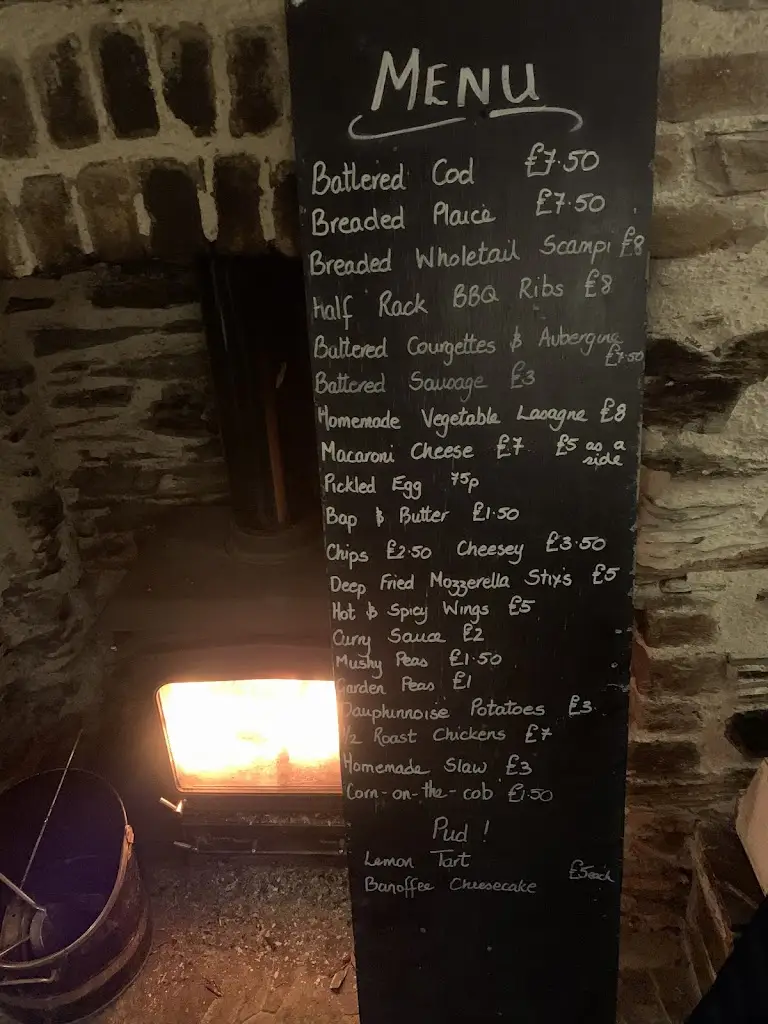 MENU
Battered Cod £7.50
Breaded Plaice £7.50
Breaded Wholetail Scampi £8
Half Rack BBQ Ribs £8
Battered Courgettes & Aubergine
£7.50
Battered Sausage £3
Homemade Vegetable Lasagne £8
Macaroni Cheese £7 £5 as a
side
Pickled Egg 75p
Bap & Butter £1.50
Chips £2.50 Cheesey £3.50
Deep Fried Mozzerella Stixs £5
Hot & Spicy Wings £5
Curry Sauce £2
Mushy Peas £1.50
Garden Peas £1
Dauphinnoise Potatoes £3
1/2 Roast Chickens £7
Homemade Slaw £3
Corn-on-the-cob £1.50
Pud!
Lemon Tart
Banoffee Cheesecake £5each